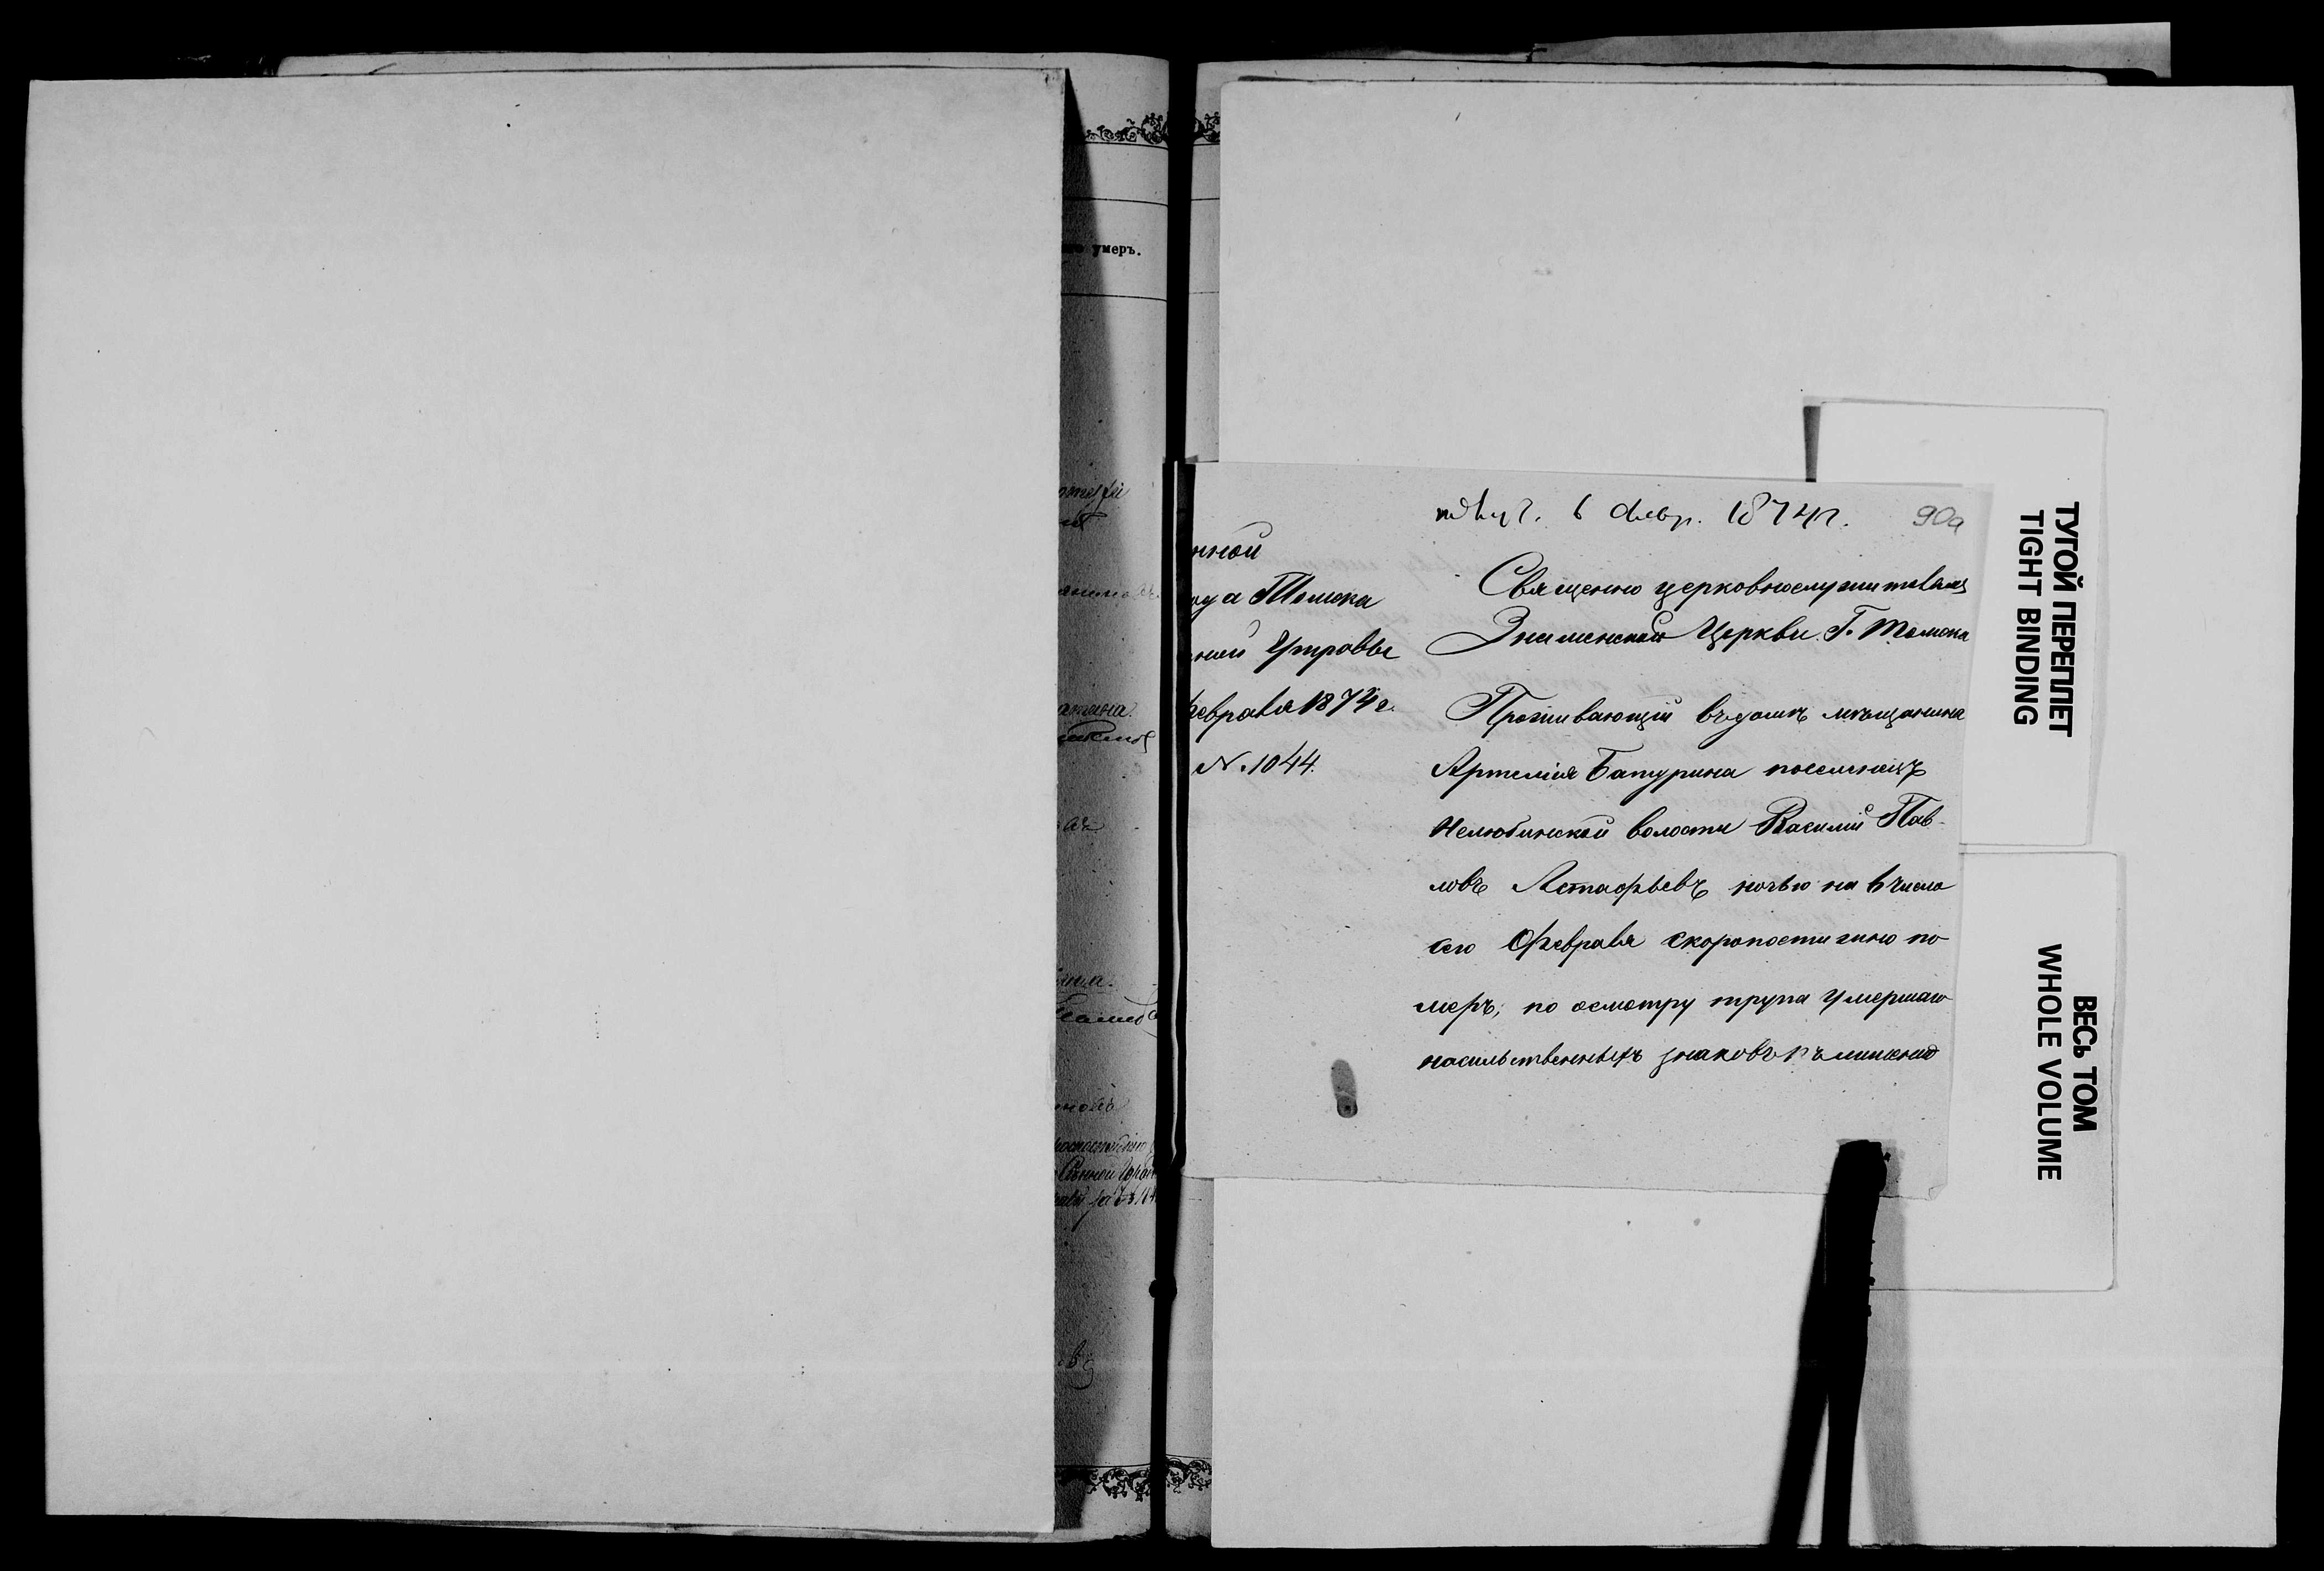 умеръ.
6 февр. 1874 г. 90а
нной
ода Томска
ной Управы
февраля 1874 г.
N. 1044.
Священно церковнослужителямъ
Знаменской Церкви Г. Томска
Проживающій въ домѣ мѣщанина
Артемія Батурина поселенецъ
Нелюбинской волости Василій Пав-
ловъ Астафьевъ ночью на 6 число
сего Февраля скоропостижно по-
меръ, по осмотру трупа умершаго
насильственныхъ знаковъ къ лишенію
ТУГОЙ ПЕРЕПЛЕТ
TIGHT BINDING
ВЕСЬ ТОМ
WHOLE VOLUME